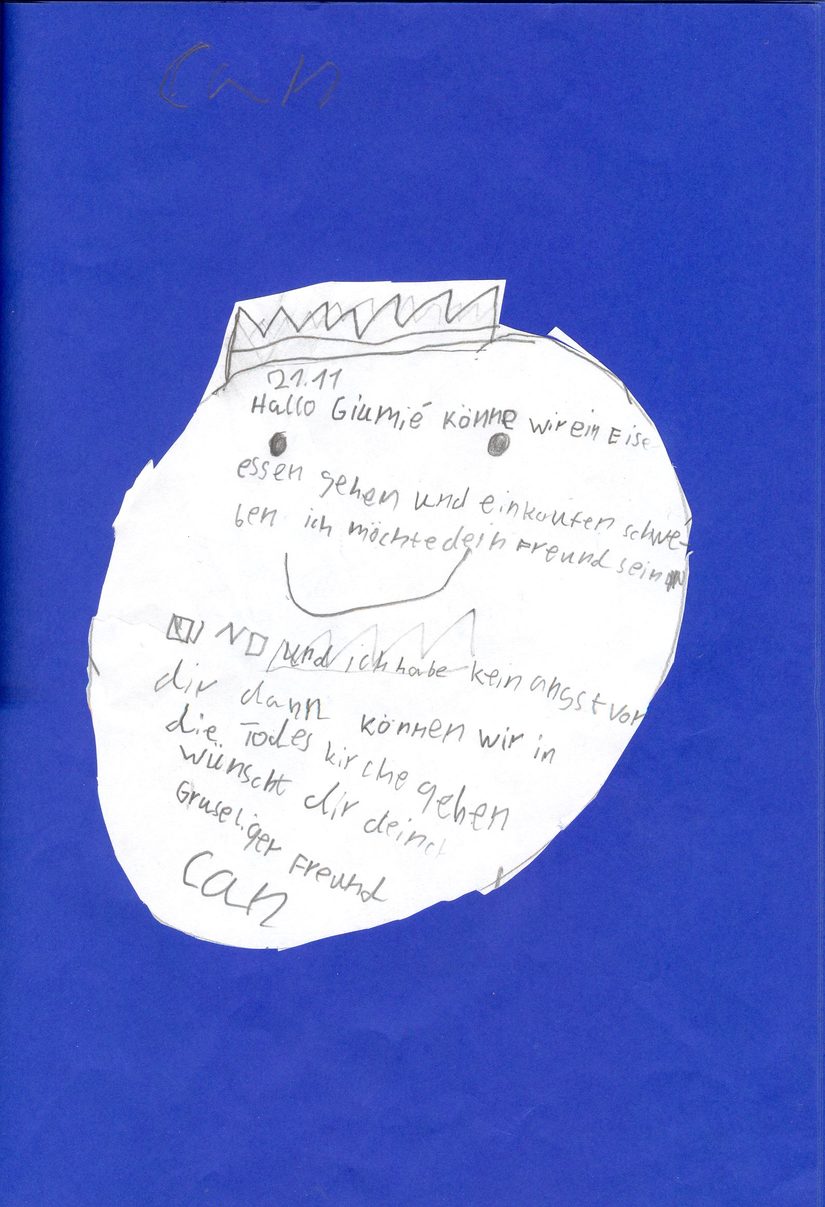 Can
21.11
Hallo Giumié könne wir ein Eise
essen gehen und einkaufen schwe-
ben ich möchte dein Freund sein
und ich habe kein angst vor
dir dann können wir in
die Todes kirche gehen
wünscht dir dein
Gruseliger Freund
Can